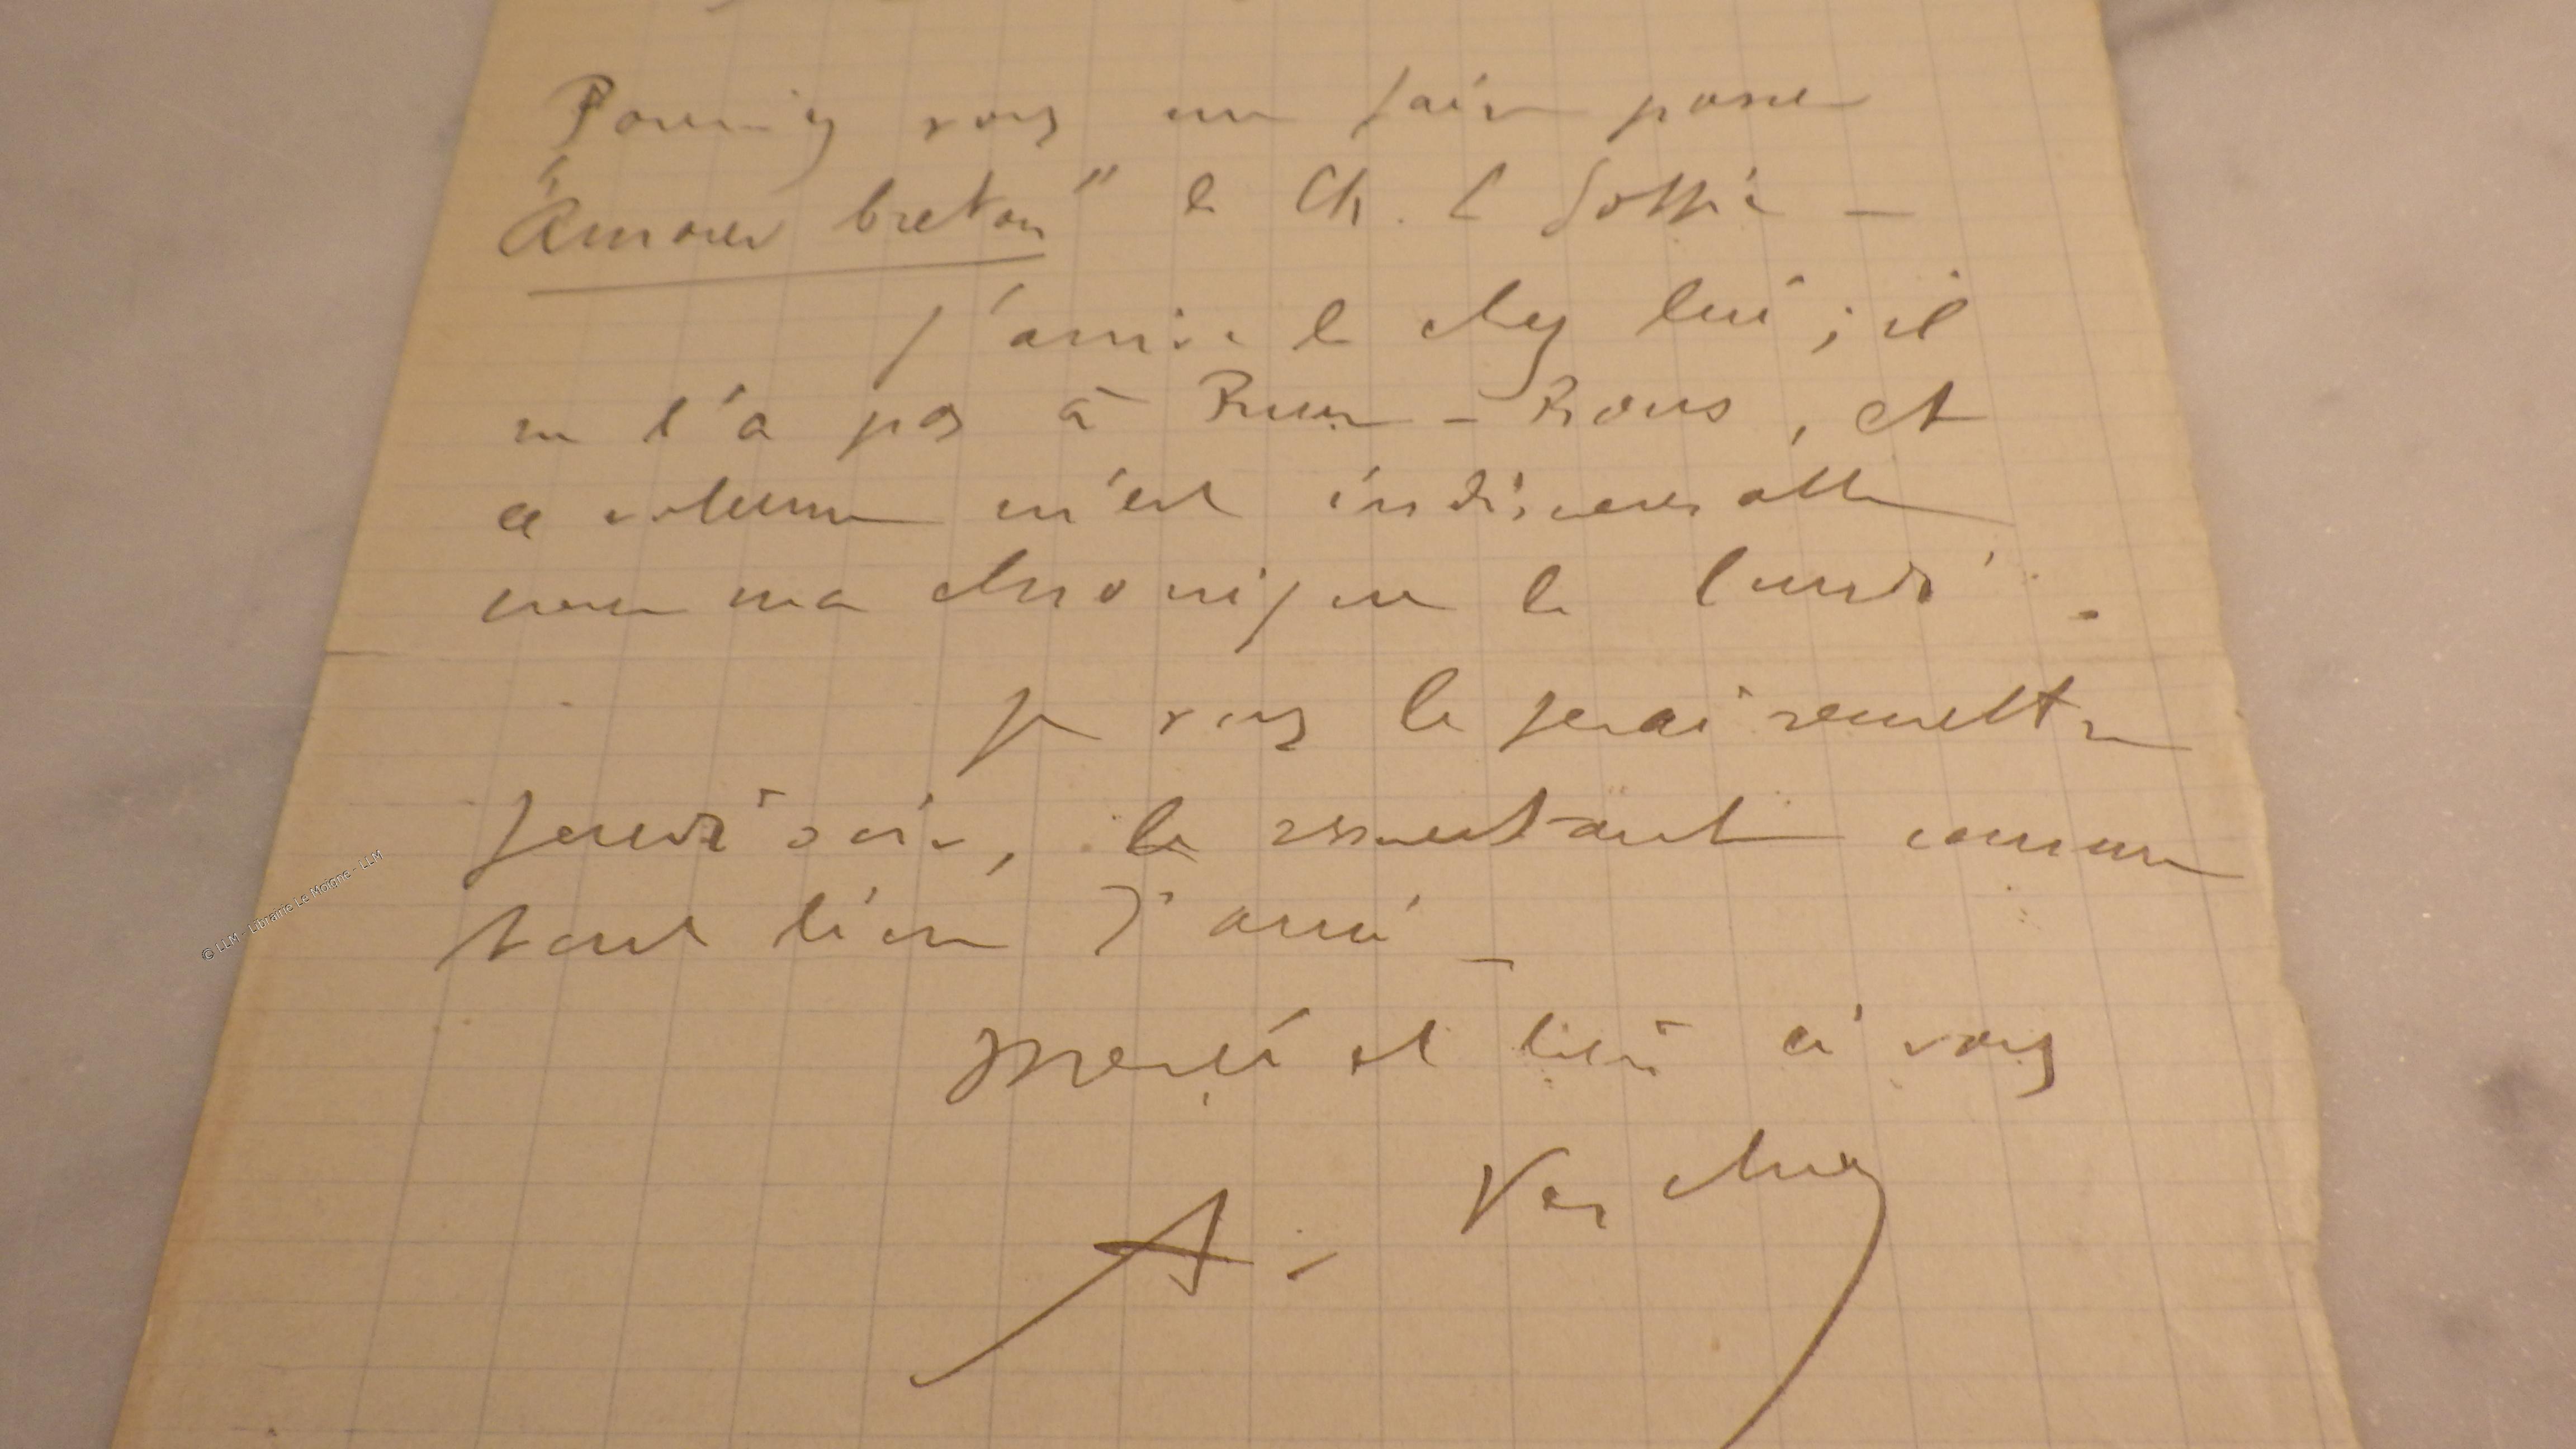 Pourriez vous me faire passer
"Amour breton" de Ch. Le Goffic —
J'arrive de chez lui ; il
ne l'a pas à Run-Rouz, et
ce volume m'est indispensable
pour ma chronique de lundi.
Je vous le ferai remettre
jeudi soir, le remettant comme
tout bien d'ami —
Merci et bien à vous
A.
© LLM - Librairie Le Moigne - LLM